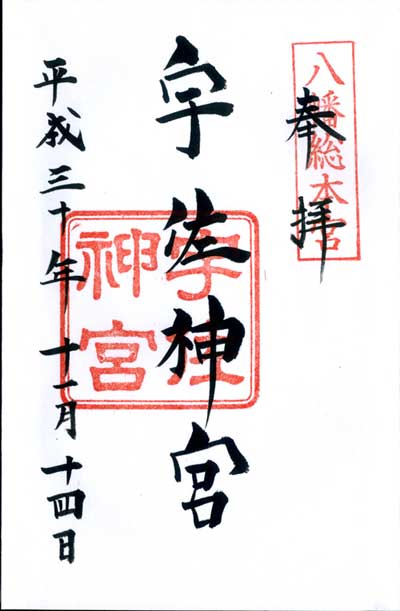 八幡総本宮
奉拝
宇佐神宮
宇佐神宮
平成三十年十一月十四日